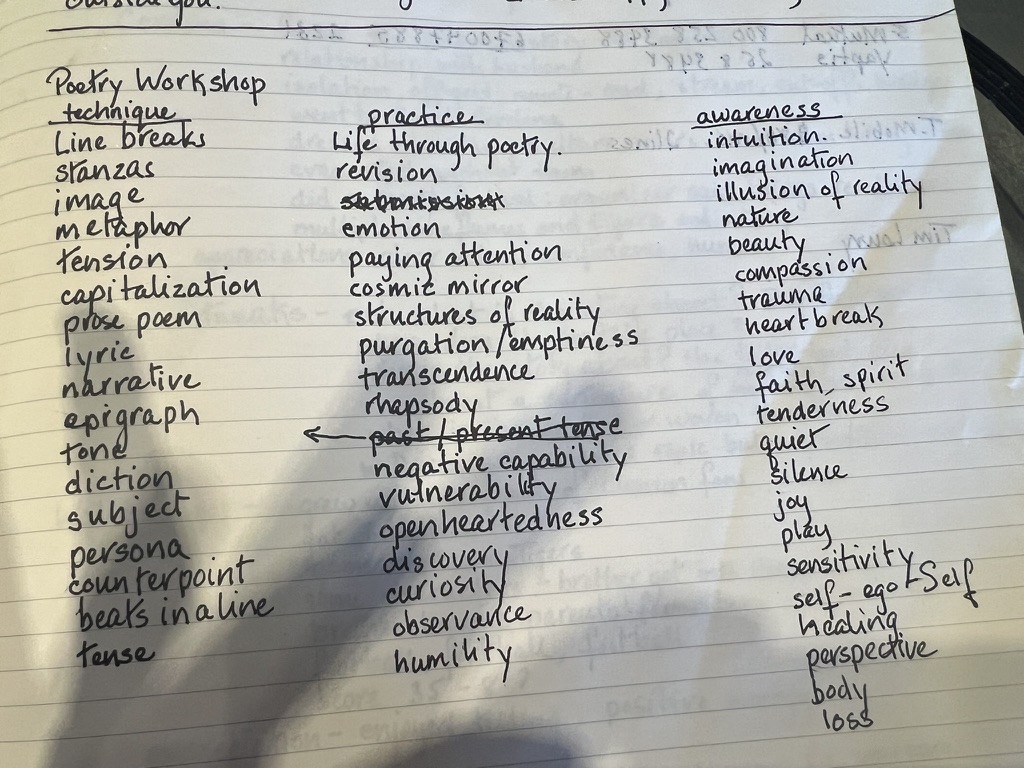 outside you.
Poetry Workshop
technique
Line breaks
stanzas
image
metaphor
tension
capitalization
prose poem
lyric
narrative
epigraph
tone
diction
subject
persona
counterpoint
beats in a line
tense
practice
Life through poetry.
revision
submission
emotion
paying attention
cosmic mirror
structures of reality
purgation/emptiness
transcendence
rhapsody
← past/present tense
negative capability
vulnerability
openheartedness
discovery
curiosity
observance
humility
awareness
intuition.
imagination
illusion of reality
nature
beauty
compassion
trauma
heartbreak
love
faith, spirit
tenderness
quiet
silence
joy
play
sensitivity
self-ego-Self
healing
perspective
body
loss